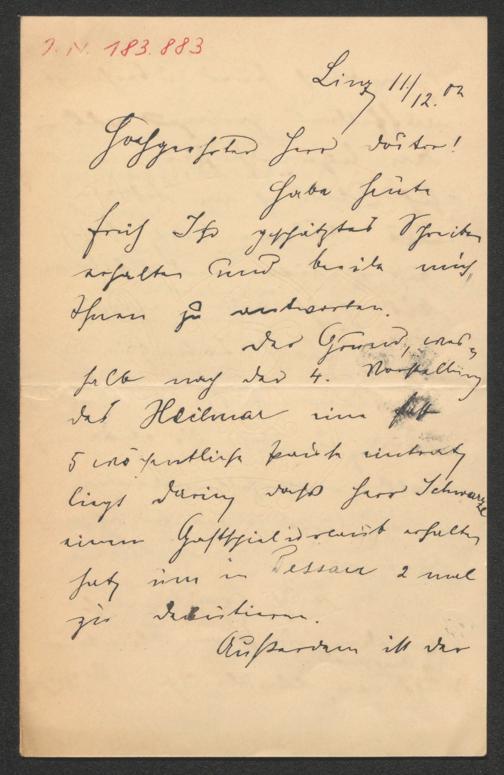 I. N. 183.883
Linz 11/12. 02
Hochgeehrter Herr Doctor!
Habe heute
früh Ihr geschätztes Schreiben
erhalten und beeile mich,
Ihnen zu antworten.
Der Grund, wes-
halb nach der 4. Vorstellung
des Heilmar eine fast
5 wöchentliche Pause eintrat,
liegt darin, daß Herr Schwarz
einen Gastspielurlaub erhalten
hat, um in Dessau 2 mal
zu debutieren.
Außerdem ist der